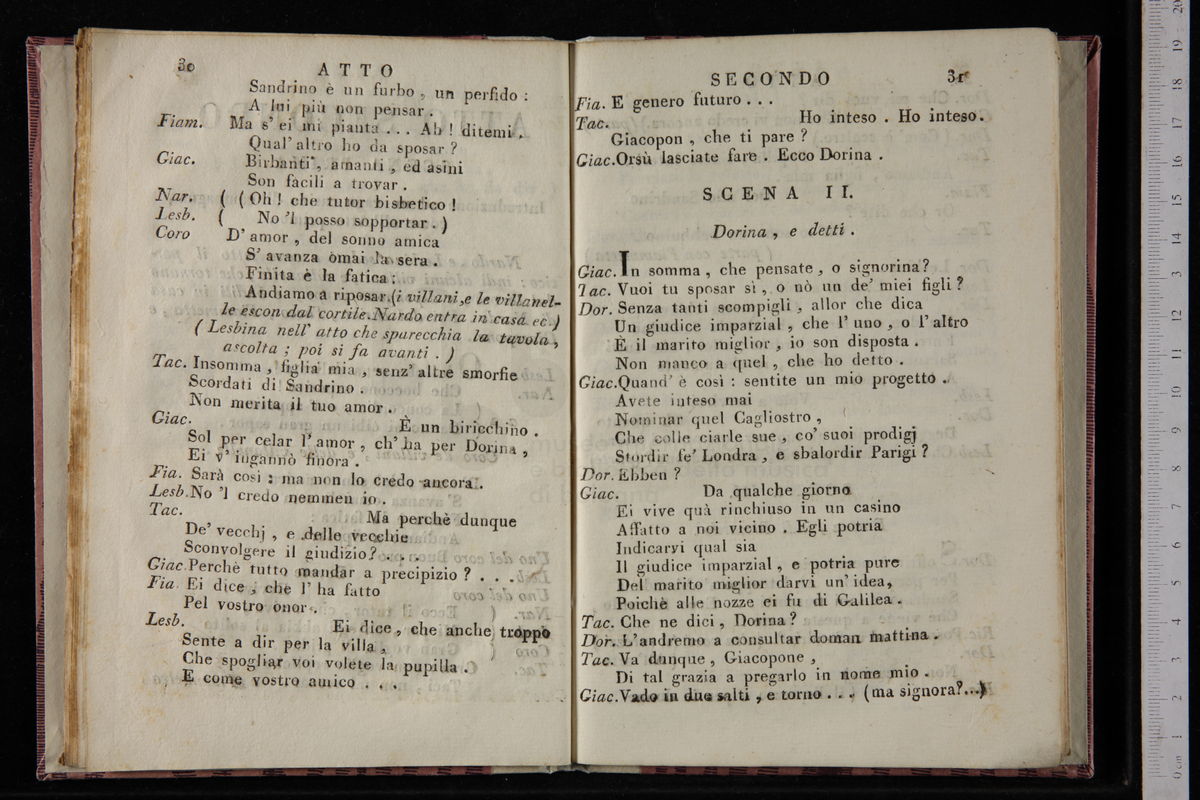 30 ATTO
Sandrino è un furbo, un perfido :
A lui più non pensar .
Fiam. Ma s' ei mi pianta . . . Ah ! ditemi ,
Qual' altro ho da sposar ?
Giac. Birbanti , amanti , ed asini
Son facili a trovar .
Nar. ( ( Oh ! che tutor bisbetico !
Lesb. ( No 'l posso sopportar . )
Coro D' amor , del sonno amica
S' avanza omai la sera .
Finita è la fatica :
Andiamo a riposar.(i villani,e le villanel-
le escon dal cortile.Nardo entra in casa ec.)
( Lesbina nell' atto che sparecchia la tavola ,
ascolta ; poi si fa avanti . )
Tac. Insomma , figlia mia , senz' altre smorfie
Scordati di Sandrino .
Non merita il tuo amor .
Giac. È un biricchino .
Sol per celar l' amor , ch' ha per Dorina ,
Ei v' ingannò finora .
Fia. Sarà così : ma non lo credo ancora .
Lesb. No 'l credo nemmen io .
Tac. Ma perchè dunque
De' vecchj , e delle vecchie
Sconvolgere il giudizio? . . .
Giac.Perchè tutto mandar a precipizio ? . . .
Fia. Ei dice , che l' ha fatto
Pel vostro onor .
Lesb. Ei dice , che anche troppo
Sente a dir per la villa ,
Che spogliar voi volete la pupilla .
E come vostro amico . . .
SECONDO 31
Fia. E genero futuro . . .
Tac. Ho inteso . Ho inteso.
Giacopon , che ti pare ?
Giac.Orsù lasciate fare . Ecco Dorina .
SCENA II.
Dorina , e detti .
Giac.In somma , che pensate , o signorina ?
Tac. Vuoi tu sposar sì , o nò un de' miei figli ?
Dor. Senza tanti scompigli , allor che dica
Un giudice imparzial , che l' uno , o l' altro
È il marito miglior , io son disposta .
Non manco a quel , che ho detto .
Giac.Quand' è così : sentite un mio progetto .
Avete inteso mai
Nominar quel Cagliostro ,
Che colle ciarle sue , co' suoi prodigj
Stordir fe' Londra , e sbalordir Parigi ?
Dor. Ebben ?
Giac. Da qualche giorno
Ei vive quà rinchiuso in un casino
Affatto a noi vicino . Egli potria
Indicarvi qual sia
Il giudice imparzial , e potria pure
Del marito miglior darvi un' idea,
Poichè alle nozze ei fu di Galilea .
Tac. Che ne dici , Dorina ?
Dor. L' andremo a consultar doman mattina .
Tac. Va dunque , Giacopone ,
Di tal grazia a pregarlo in nome mio .
Giac.Vado in due salti , e torno . . . (ma signora?...)